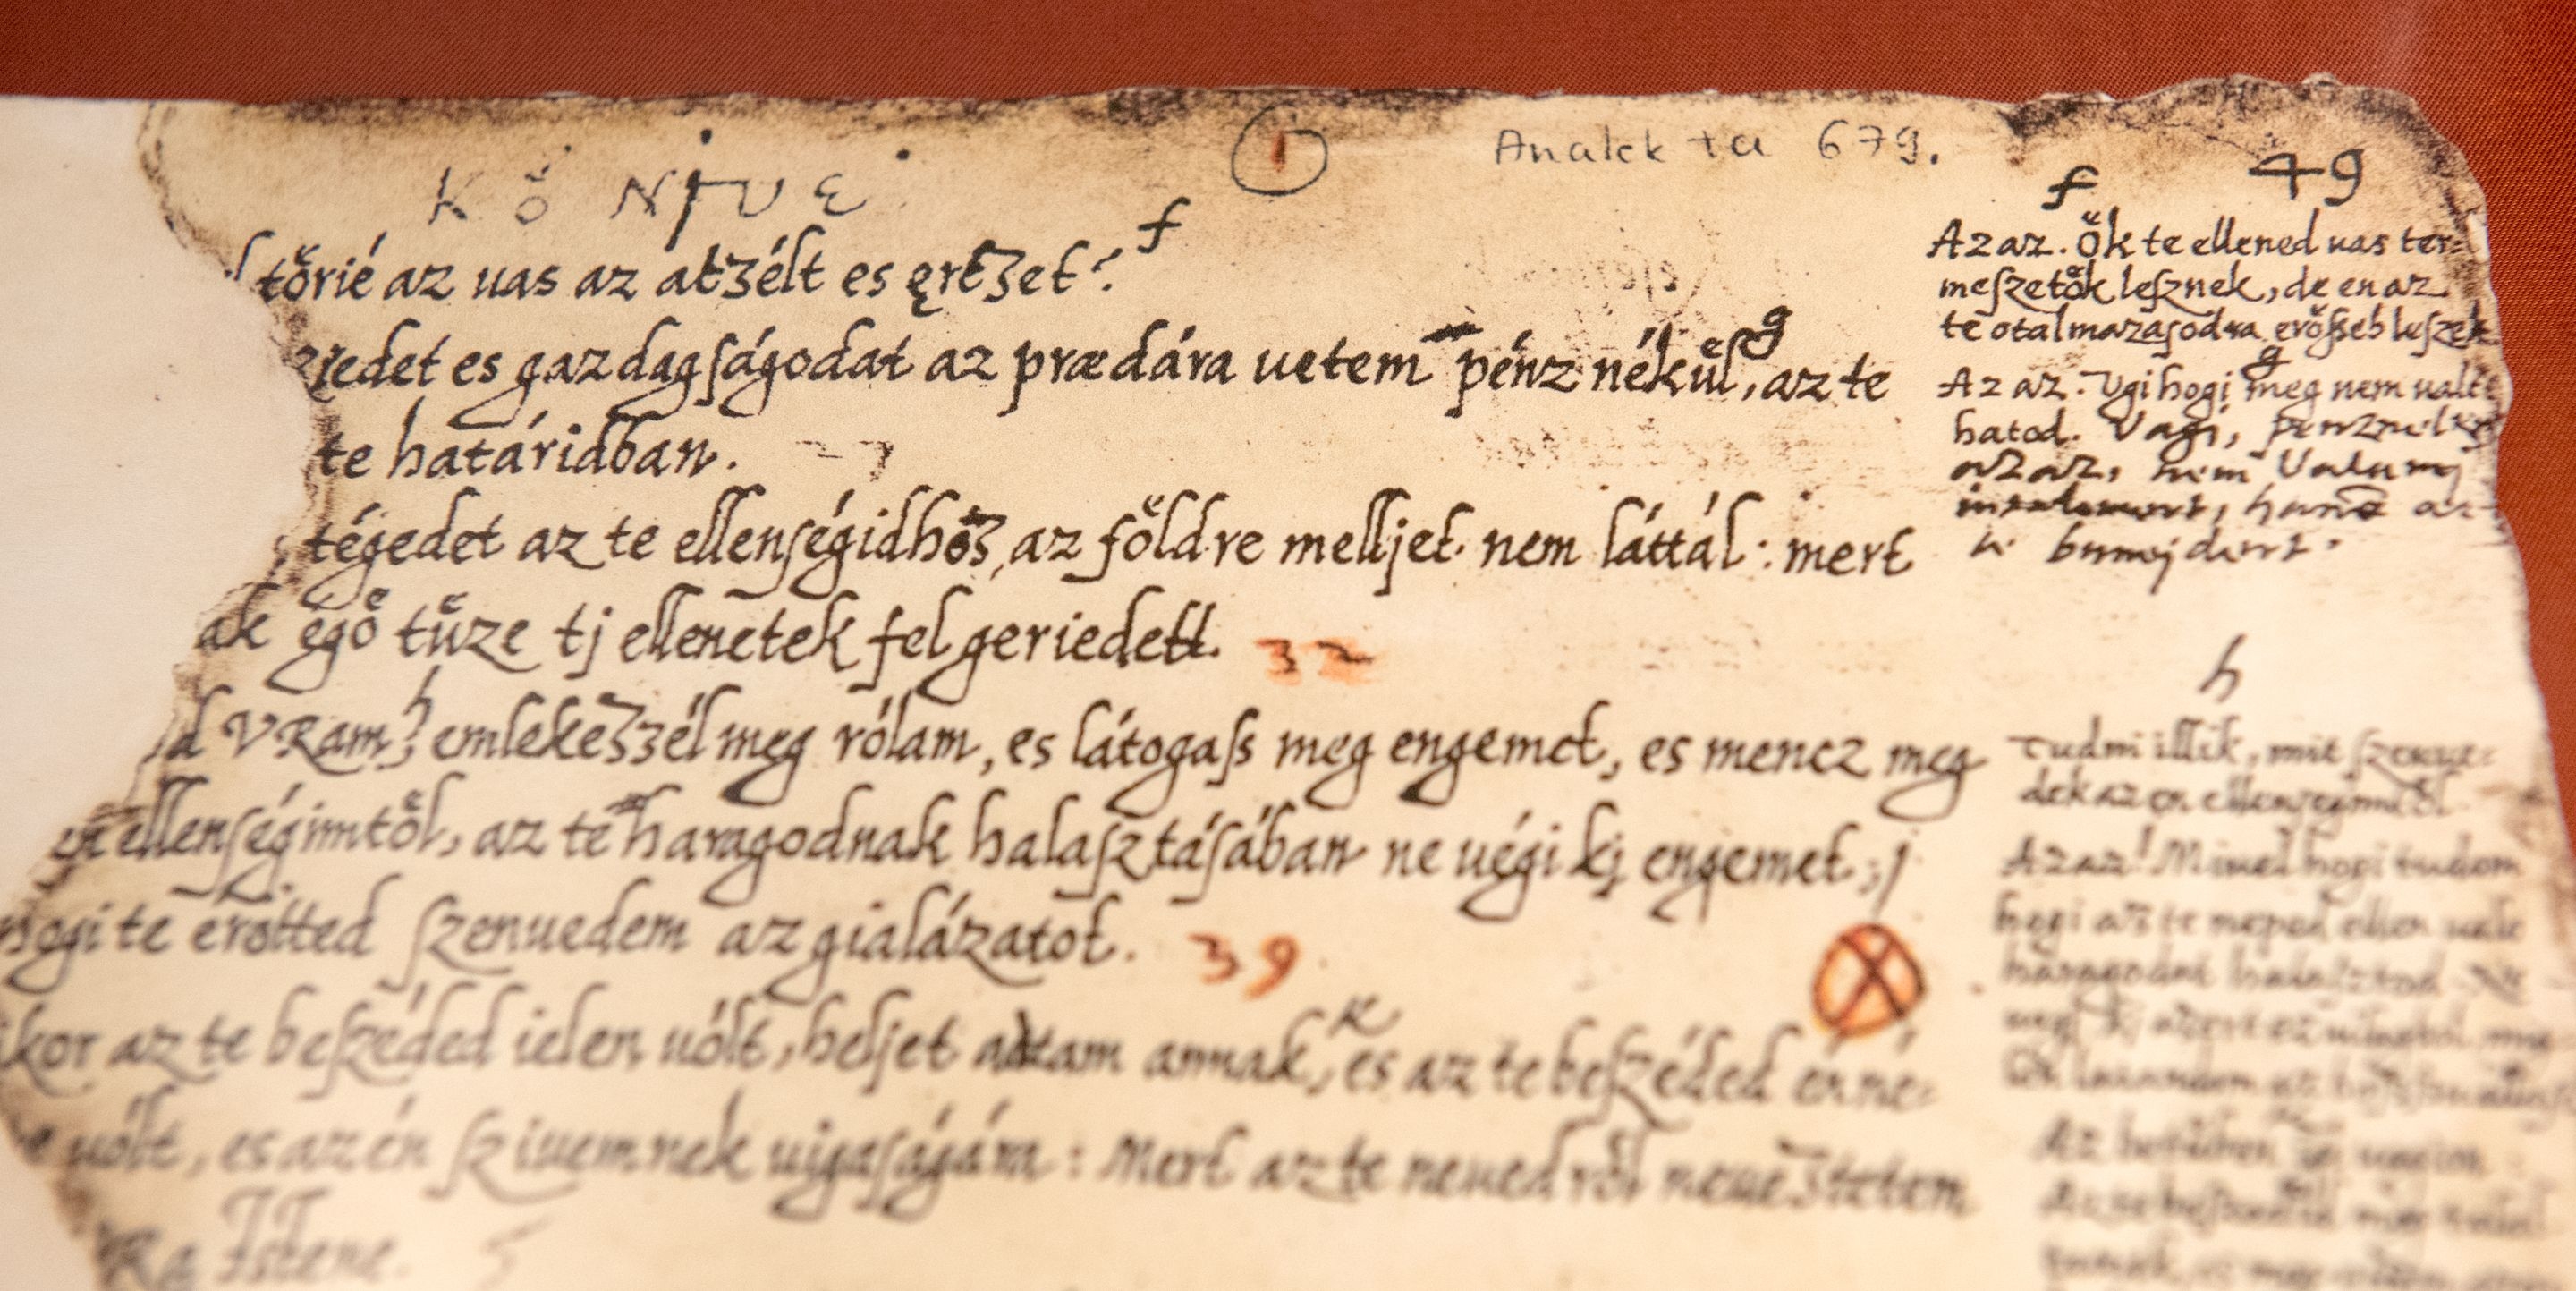 KŐNIVE
①
Analekta 679.
49
törié az uas az atzélt es ęrtzet? f
zredet es gazdagságodat az prædára uetem pénz nékűl, g az te
te határidban.
tégedet az te ellenségidhőz, az földre melljet nem láttál: mert
ak égő tűze tj ellenetek fel geriedett. 32
d VRam? h emlekezzél meg rólam, es látogaſs meg engemet, es mencz meg
en ellenségimtől, az te haragodnak halaſztáſában ne uégi kj engemet, j
hogi te érötted ſzenuedem az gialázatot. 39
ikor az te beſzéded ielen uólt, heljet adtam annak, k es az te beſzéded én né-
uólt, es az én ſziuemnek uigaſágára: Mert az te neuedről neueztetem
Ra Istene. 5
f
Az az. Ők te ellened uas ter-
meſzetők leſznek, de en az
te otalmazaſodra erőſseb leſzek
g
Az az. Vgi hogi meg nem ualt
hatod. Vagi,
az az, nem
te bűnejdert.
h
Tudni illik, mit ſzenue-
dek az en ellensegimtől
Az az! Miuel hogi tudom
hogi az te neped ellen ualo
haragodat halaſztod